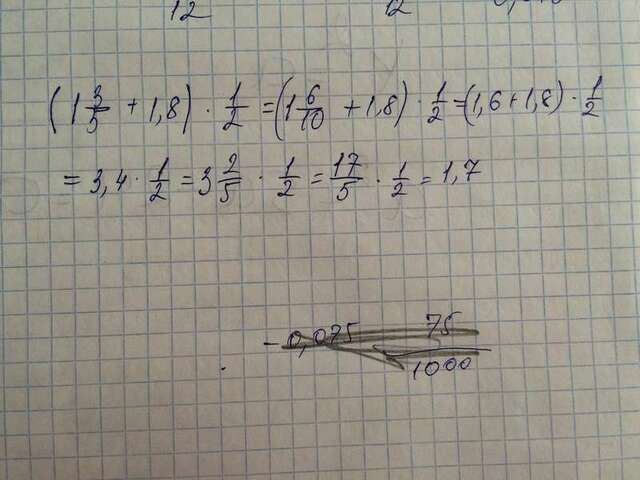 12 12
(1 3/5 + 1,8) · 1/2 = (1 6/10 + 1,8) · 1/2 = (1,6 + 1,8) · 1/2
= 3,4 · 1/2 = 3 2/5 · 1/2 = 17/5 · 1/2 = 1,7
- 0,075 75/1000